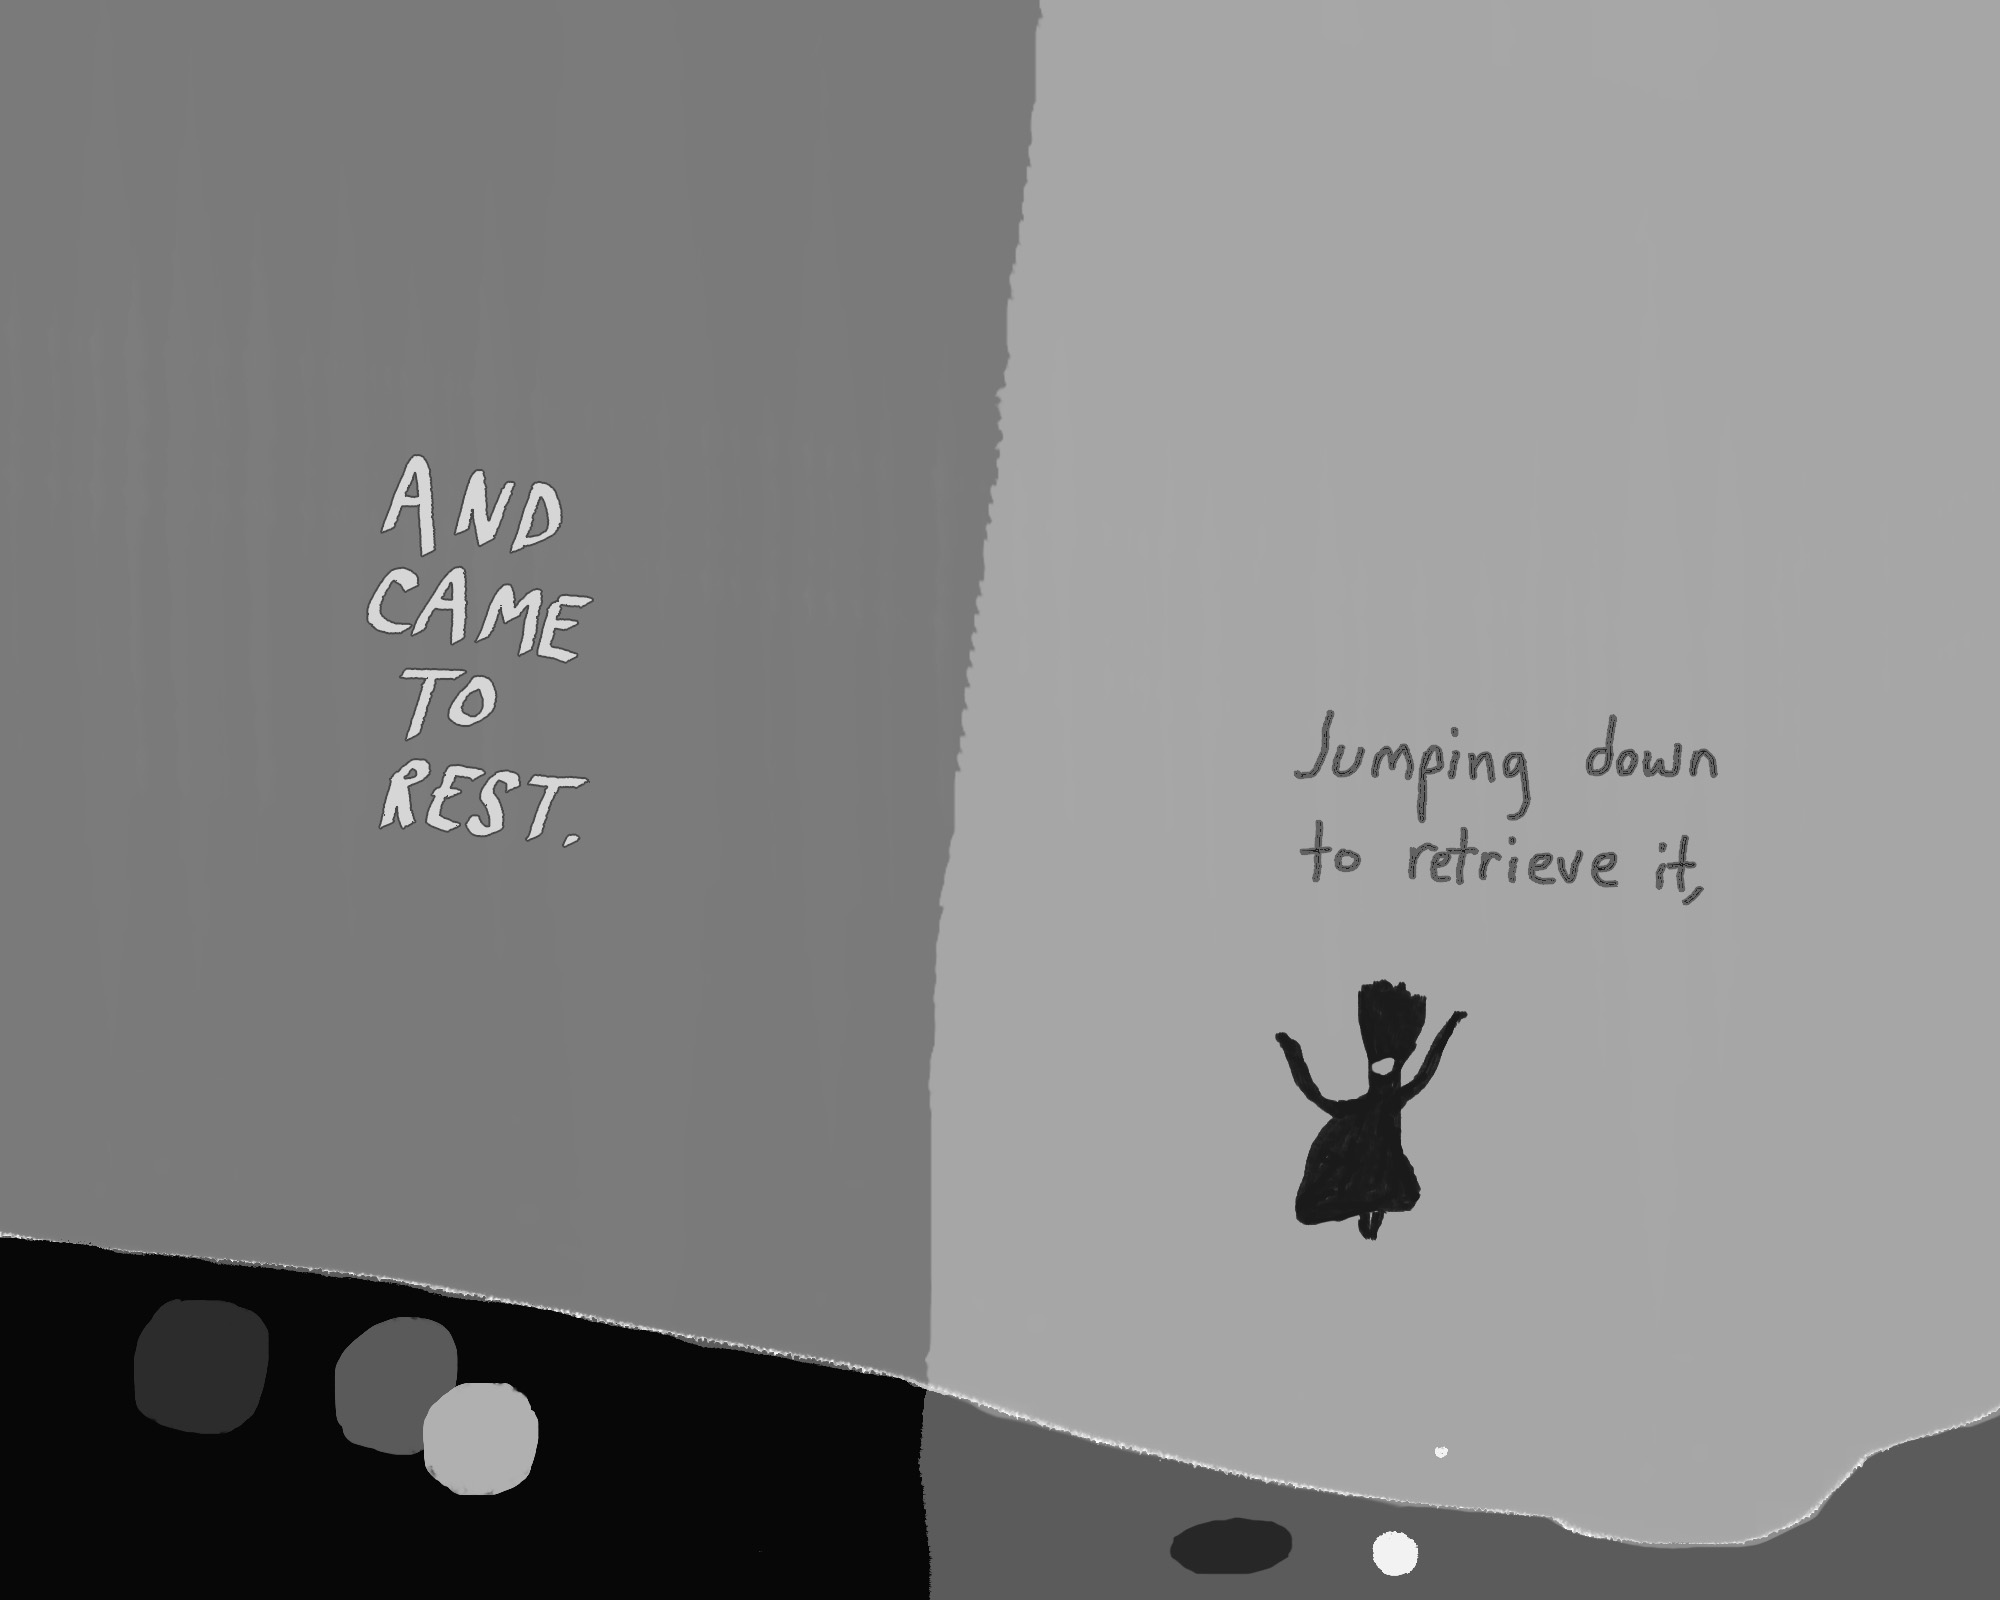 AND
CAME
TO
REST.
Jumping down
to retrieve it,